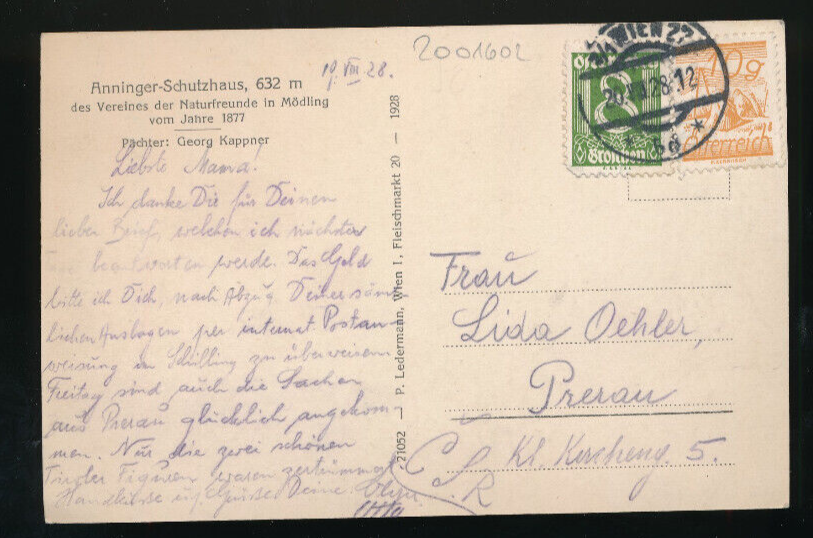 2001602
19. VIII. 28.
Anninger-Schutzhaus, 632 m
des Vereines der Naturfreunde in Mödling
vom Jahre 1877
Pächter: Georg Kappner
Liebste Mama!
Ich danke Dir für Deinen
lieben Brief, welchen ich nächsten
beantworten werde. Das Geld
bitte ich Dich, nach Abzug Deiner säm-
lichen Auslagen per internat. Postan-
weisung in Schilling zu überweisen
Freitag sind auch die Sachen
aus Prerau glücklich angekom-
men. Nur die zwei schönen
Tiroler Figuren waren zertrümmert.
Handküsse u. Grüsse Deine
Otto
21052 — P. Ledermann, Wien I, Fleischmarkt 20 — 1928
WIEN 27
28 12
8
Groschen
10 g
Österreich
Frau
Lida Oehler,
Prerau
Kl. 5.
C S R